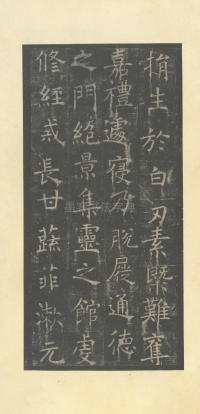 捐生於白刃素槩難奪
嘉禮遽寝乃脫屣通德
之門絕景集靈之館虔
修經戒長甘蔬菲漱元